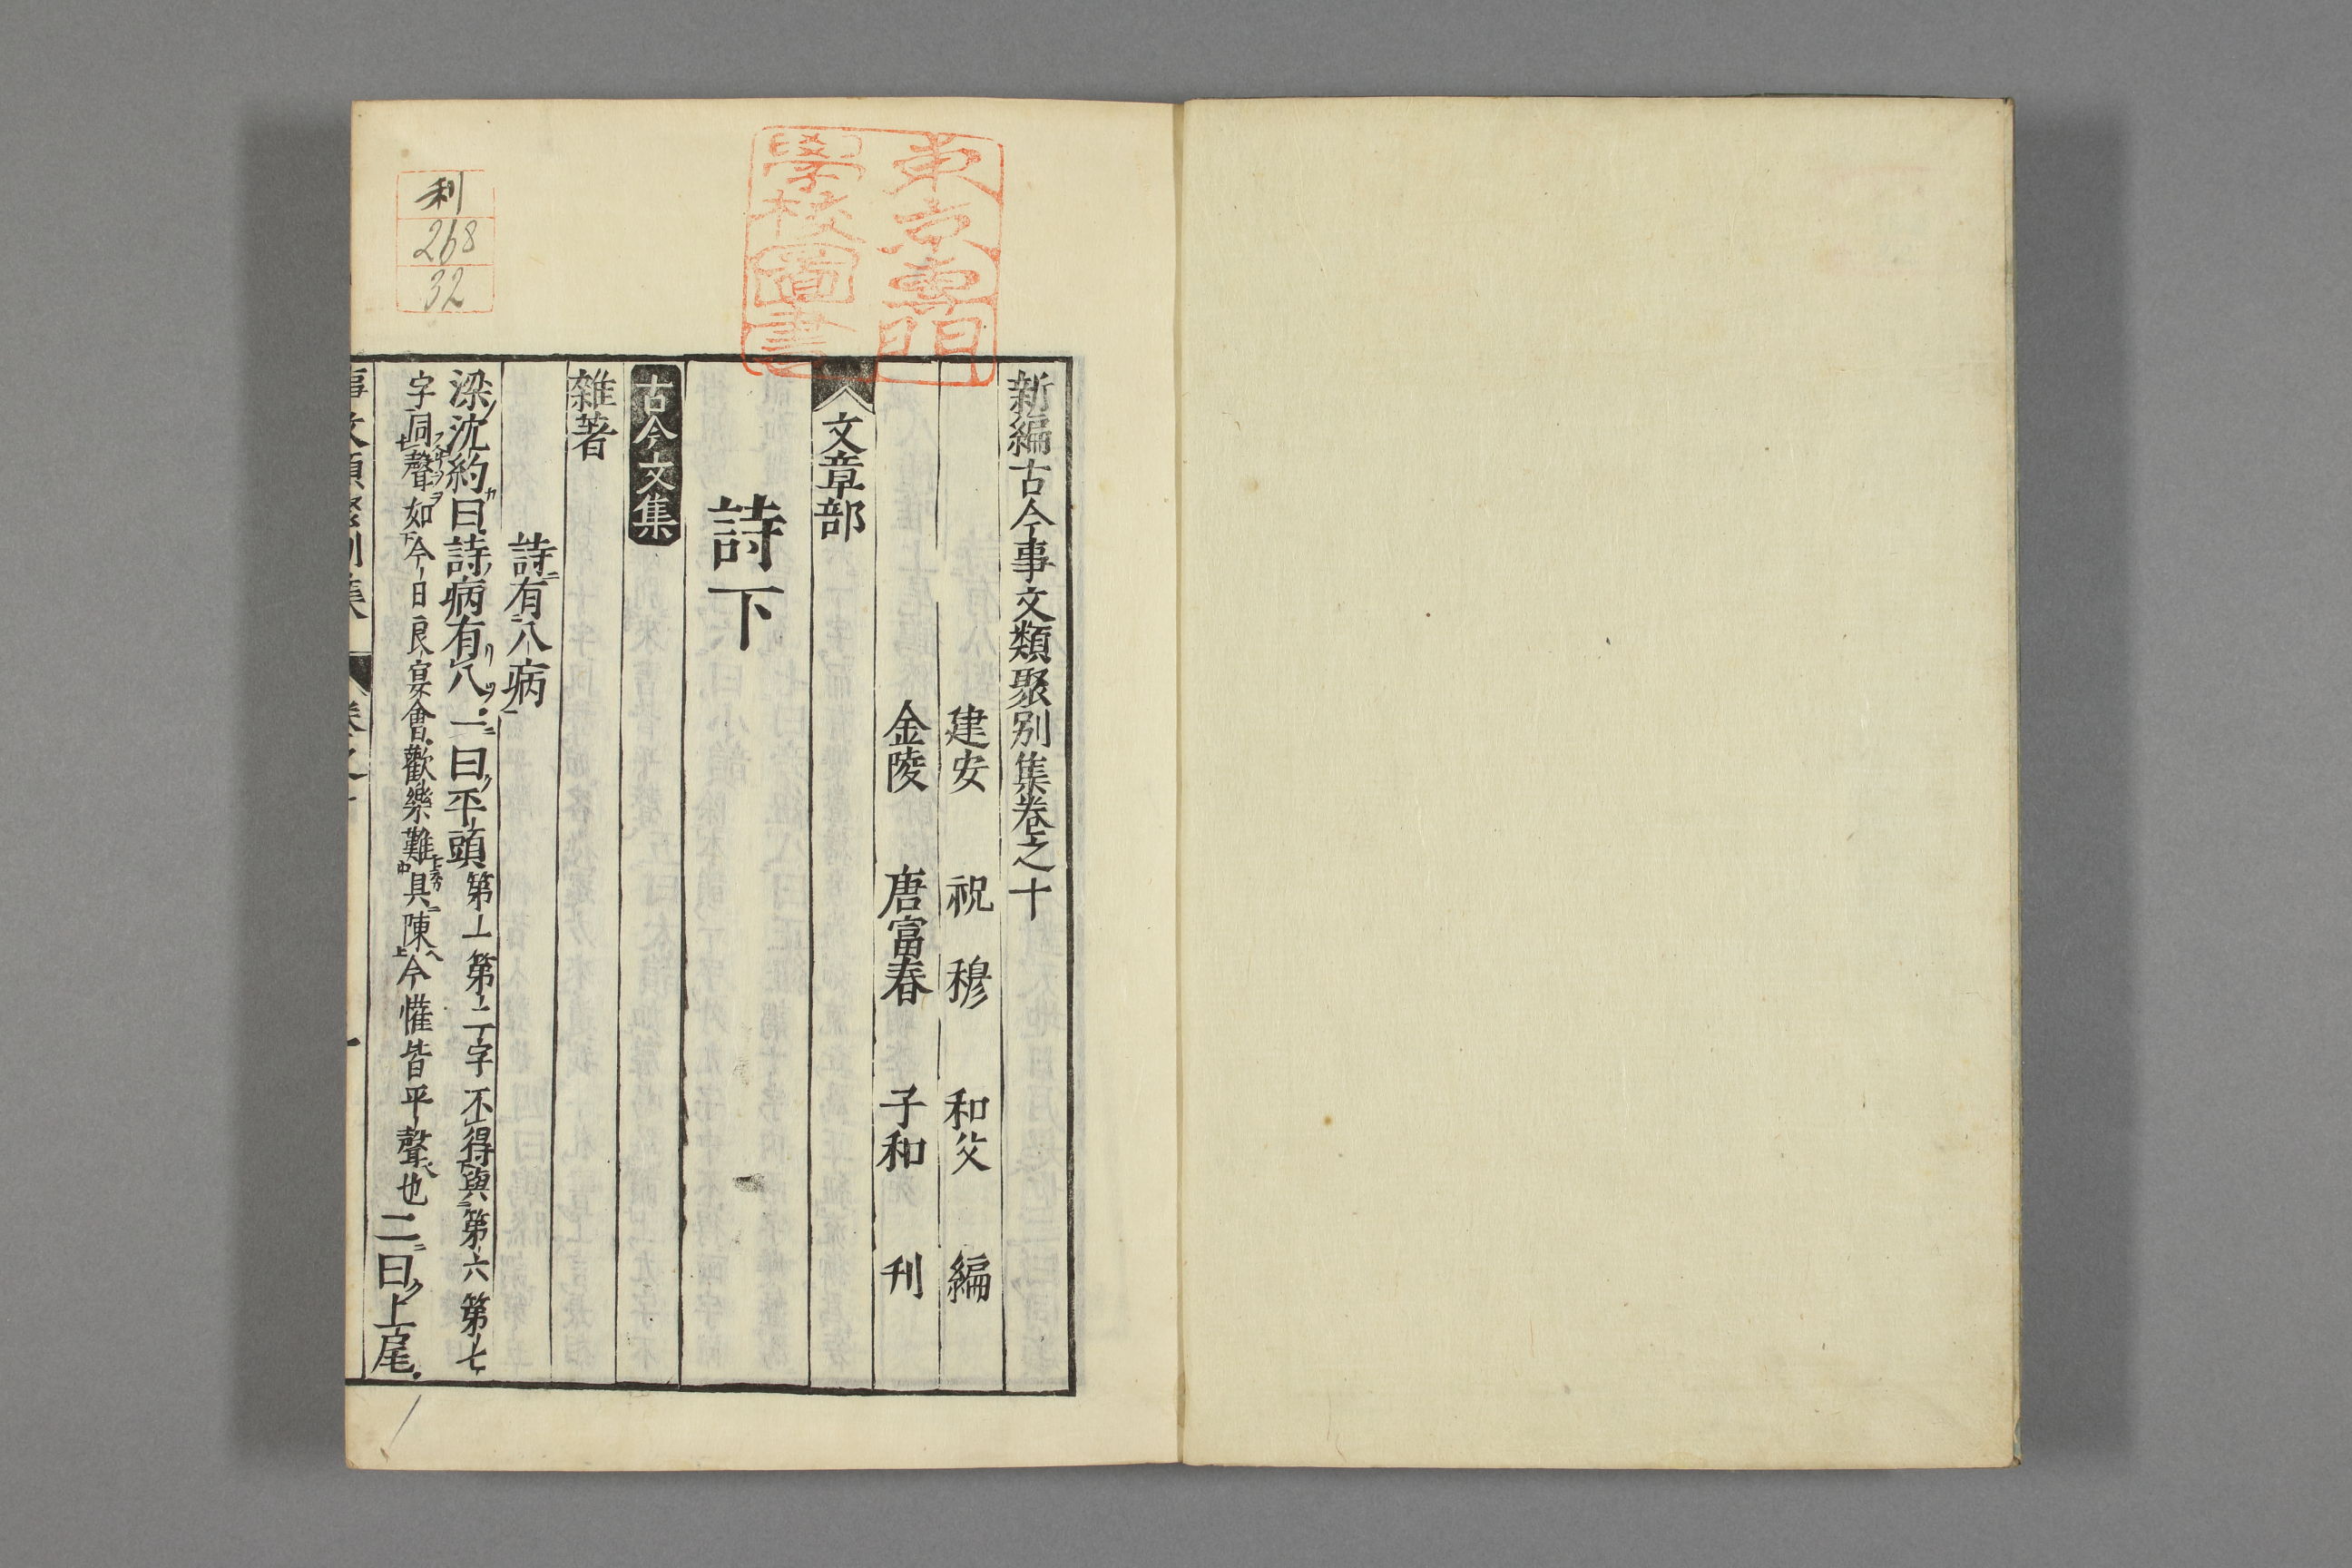 東京專門
學校圖書
利
268
32
新編古今事文類聚別集卷之十
建安 祝穆 和父 編
金陵 唐富春 子和 刊
文章部
詩下
古今文集
雜著
詩有八病
梁沈約曰詩病有八一曰平頭第一第二字不得與第六第七
字同聲如今日良宴會歡樂難具陳今懽皆平聲也二曰上尾
事文類聚別集 卷之十